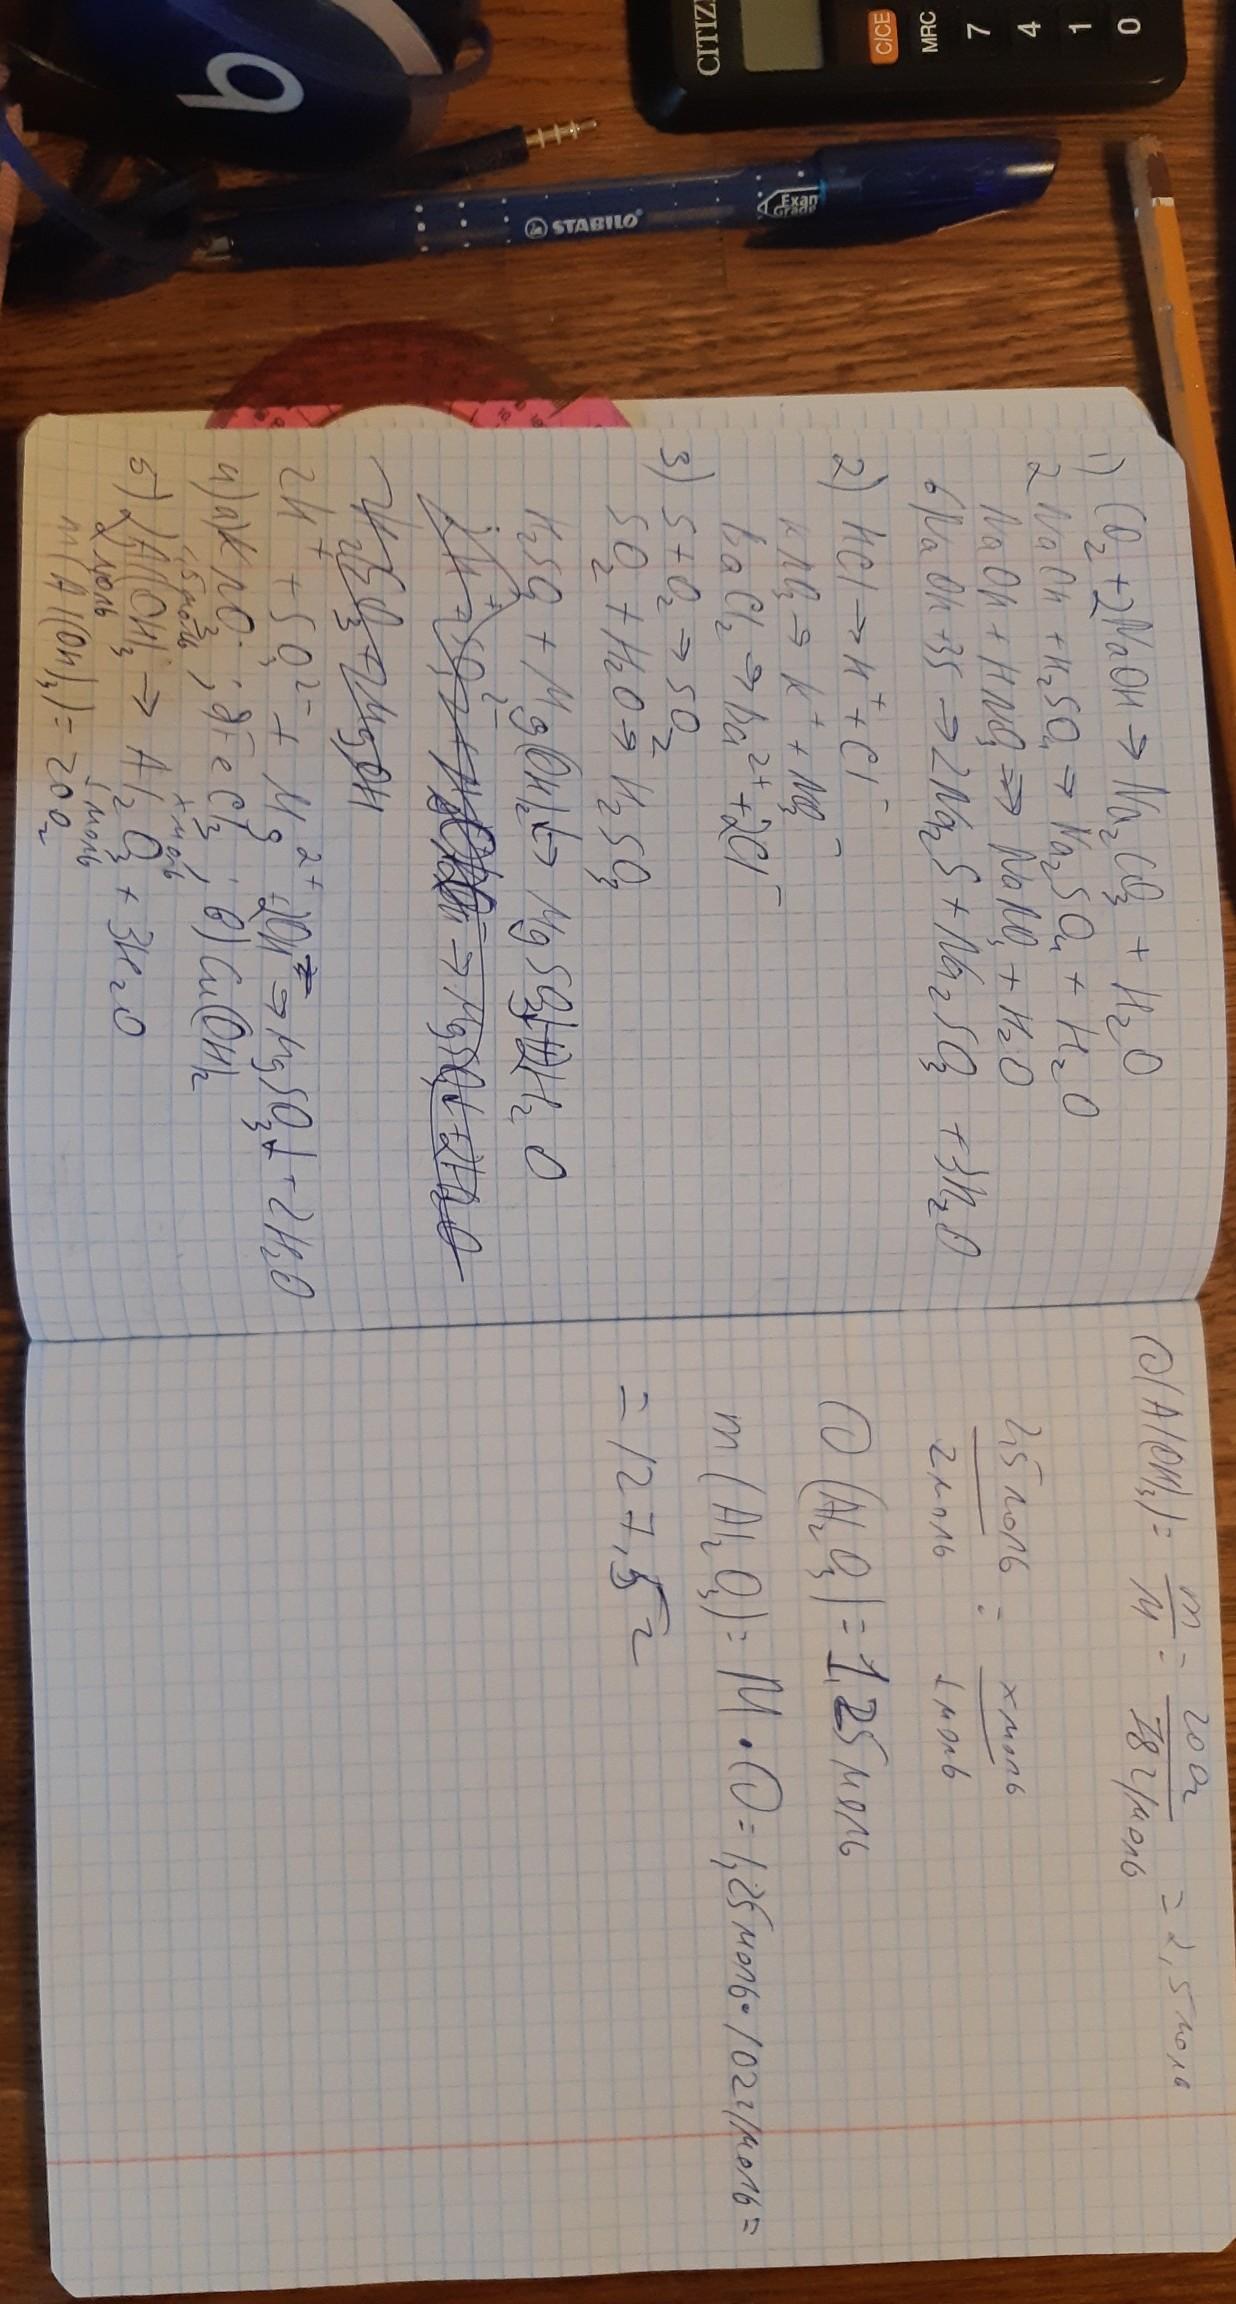 CITIZ
C/CE
MRC
7
4
1
0
STABILO
Exam
Grade
b
1) CO₂ + 2NaOH → Na₂CO₃ + H₂O
2NaOH + H₂SO₄ → Na₂SO₄ + H₂O
NaOH + HNO₃ → NaNO₃ + H₂O
6NaOH + 3S → 2Na₂S + Na₂SO₃ + 3H₂O
2) HCl → H⁺ + Cl⁻
KNO₃ → K⁺ + NO₃⁻
BaCl₂ → Ba²⁺ + 2Cl⁻
3) S + O₂ → SO₂
SO₂ + H₂O → H₂SO₃
H₂SO₃ + Mg(OH)₂↓ → MgSO₃↓ + 2H₂O
2H⁺ + SO₃²⁻ + Mg²⁺ + 2OH⁻ → MgSO₃↓ + 2H₂O
4) а) KNO₃; б) FeCl₃; в) Cu(OH)₂
х моль
5) 2Al(OH)₃ → Al₂O₃ + 3H₂O
2 моль 1 моль
m(Al(OH)₃) = 200г
υ(Al(OH)₃) = m/M = 200г/78г/моль = 2,5 моль
2,5 моль/2 моль = х моль/1 моль
υ(Al₂O₃) = 1,25 моль
m(Al₂O₃) = M · υ = 1,25 моль · 102г/моль =
= 127,5г